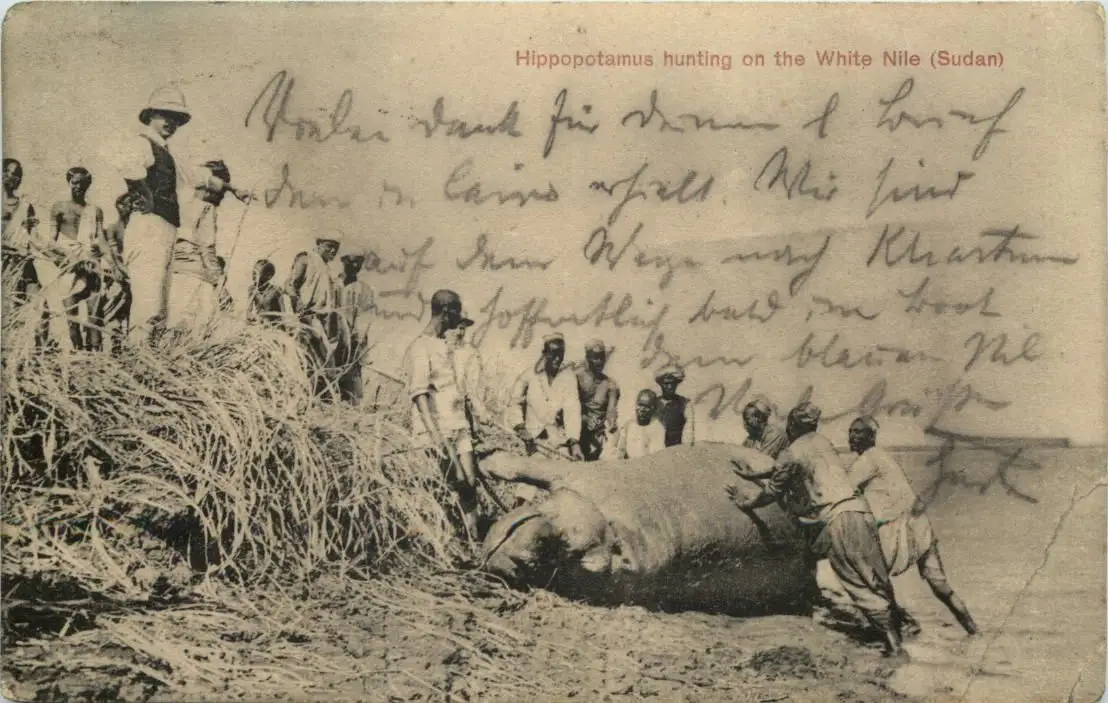 Hippopotamus hunting on the White Nile (Sudan)
Vielen Dank für Deinen l. Brief
den in Cairo erhielt. Wir sind
auf dem Wege nach Khartum
und hoffentlich bald im Boot
dem blauen Nil